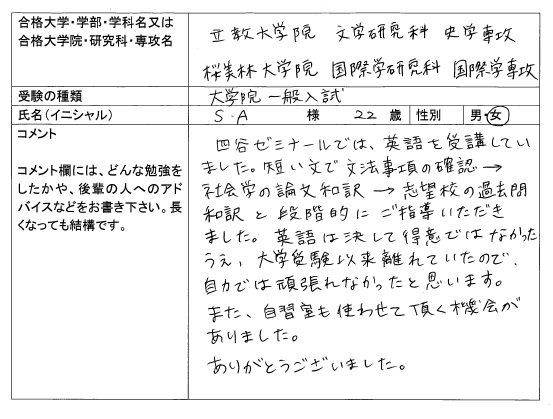 合格大学・学部・学科名又は
合格大学院・研究科・専攻名
立教大学院 文学研究科 史学専攻
桜美林大学院 国際学研究科 国際学専攻
受験の種類
大学院一般入試
氏名(イニシャル)
S・A 様 22 歳 性別 男・女
コメント
コメント欄には、どんな勉強を
したかや、後輩の人へのアド
バイスなどをお書き下さい。長
くなっても結構です。
四谷ゼミナールでは、英語を受講してい
ました。短い文で文法事項の確認→
社会学の論文和訳→志望校の過去問
和訳と段階的にご指導いただき
ました。英語は決して得意ではなかった
うえ、大学受験以来離れていたので、
自力では頑張れなかったと思います。
また、自習室も使わせて頂く機会が
ありました。
ありがとうございました。